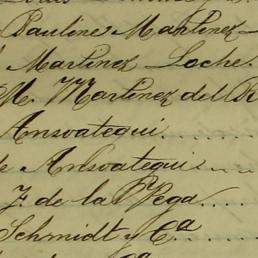 Pauline Martinez
Martinez Loche.
M. Martinez del R
Ansoategui
de Ansoategui
F de la Vega
Schmidt y Ca